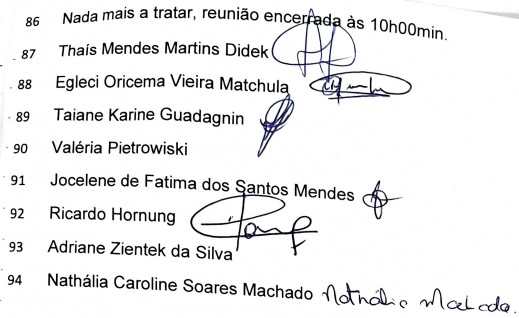 86 Nada mais a tratar, reunião encerrada às 10h00min.
87 Thaís Mendes Martins Didek
88 Egleci Oricema Vieira Matchula
89 Taiane Karine Guadagnin
90 Valéria Pietrowiski
91 Jocelene de Fatima dos Santos Mendes
92 Ricardo Hornung
93 Adriane Zientek da Silva
94 Nathália Caroline Soares Machado Nathália Machado.